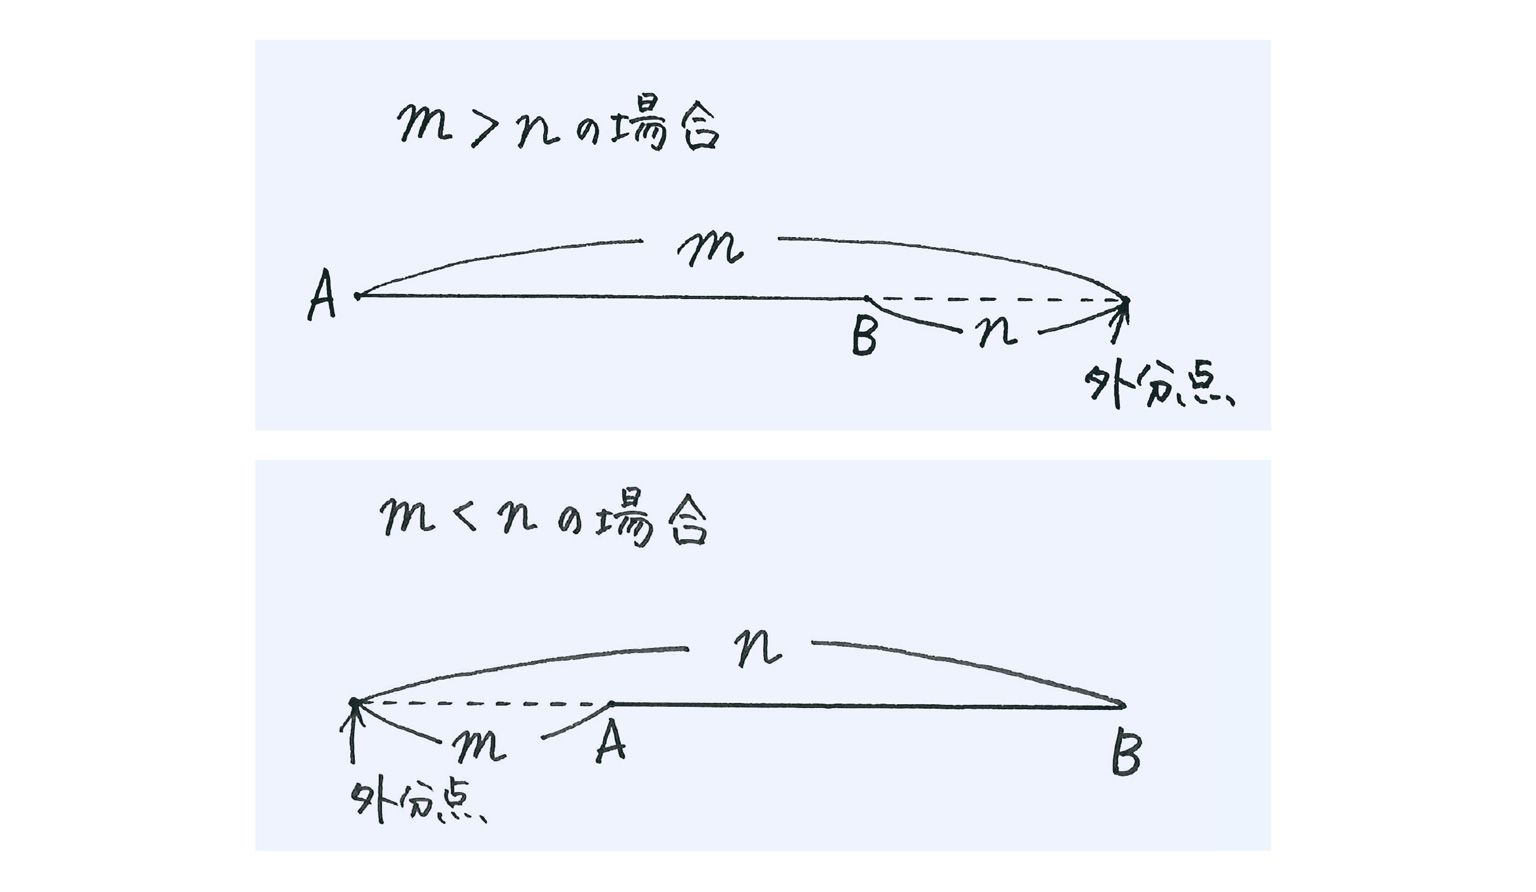 m > n の場合
m
A
B
n
外分点
m < n の場合
n
m
A
B
外分点